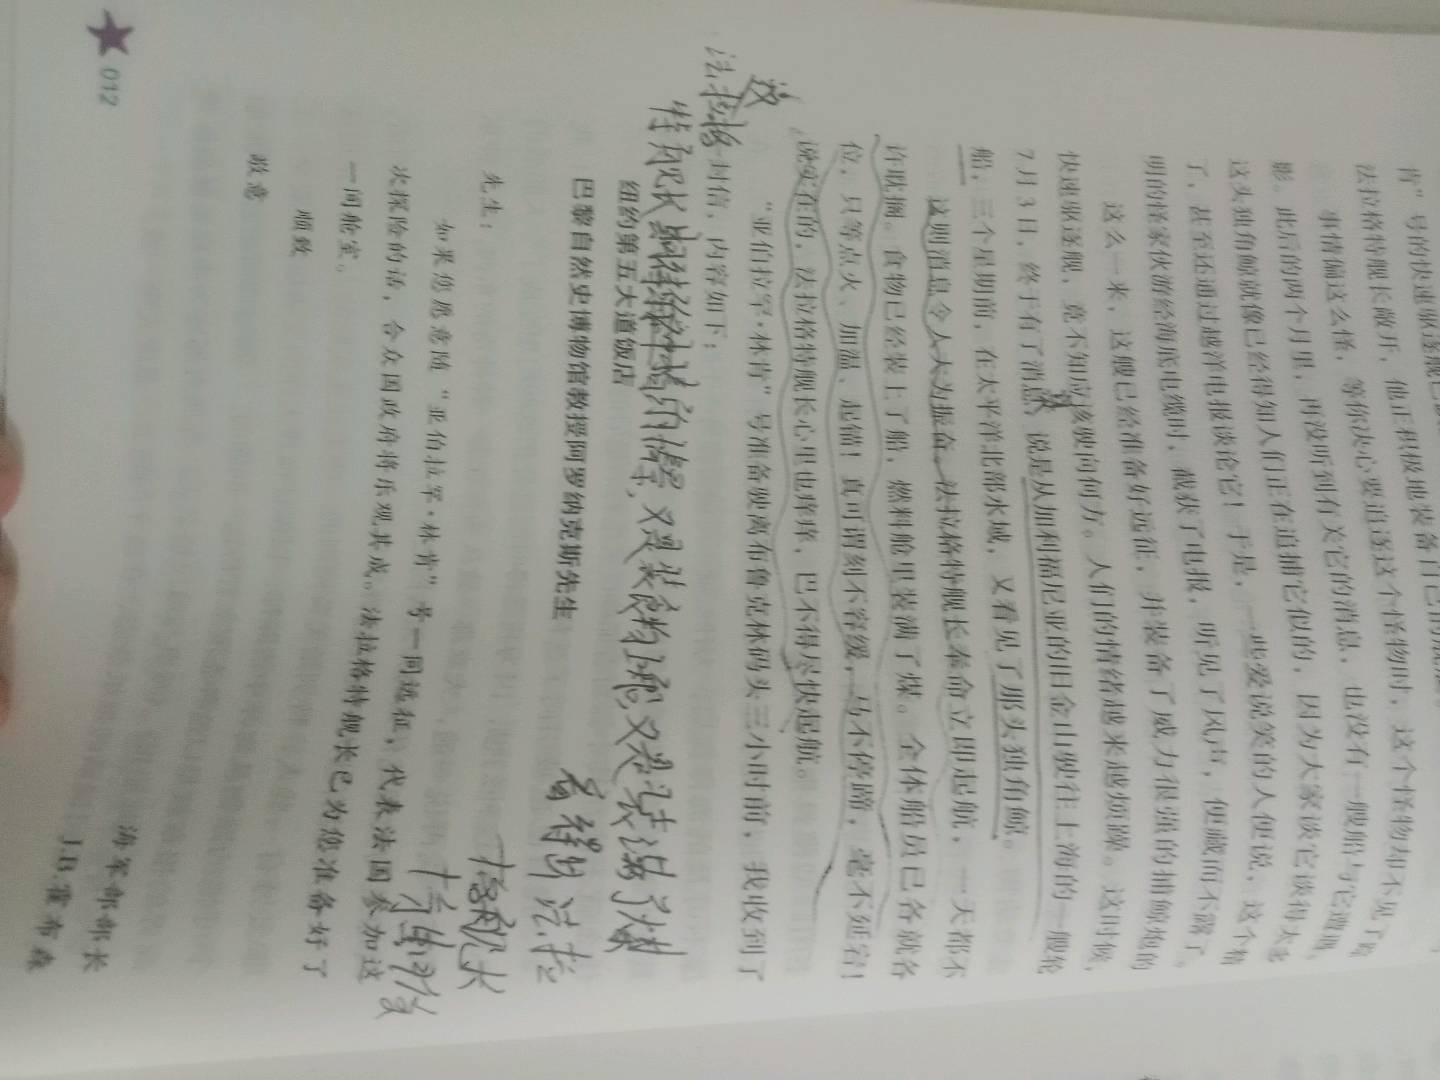 法拉格特舰长敞开，他正积极地装备自己的
事情偏这么怪，等你决心要追逐这个怪物时，这个怪物却不见了踪
影。此后的两个月里，再没听到有关它的消息，也没有一艘船与它遭遇。
这头独角鲸就像已经得知人们正在追捕它似的，因为大家谈它谈得太多
了，甚至还通过越洋电报谈论它！于是，一些爱说笑的人便说，这个精
明的怪家伙游经海底电缆时，截获了电报，听见了风声，便藏而不露了。
这么一来，这艘已经准备好远征，并装备了威力很强的捕鲸炮的
快速驱逐舰，竟不知应该驶向何方。人们的情绪越来越烦躁。这时候，
7月3日，终于有了消息，说是从加利福尼亚的旧金山驶往上海的一艘轮
船，三个星期前，在太平洋北部水域，又看见了那头独角鲸。
这则消息令人大为振奋。法拉格特舰长奉命立即起航，一天都不
许耽搁。食物已经装上了船，燃料舱里装满了煤。全体船员已各就各
位，只等点火、加温、起锚！真可谓刻不容缓，马不停蹄，毫不延宕！
说实在的，法拉格特舰长心里也痒痒，巴不得尽快起航。
“亚伯拉罕·林肯”号准备驶离布鲁克林码头三小时前，我收到了
一封信，内容如下：
这
法拉格
特舰长
又是装食物呢又是装满了煤
纽约第五大道饭店
巴黎自然史博物馆教授阿罗纳克斯先生
法拉
格舰长
十分
先生：
如果您愿意随“亚伯拉罕·林肯”号一同远征，代表法国参加这
次探险的话，合众国政府将乐观其成。法拉格特舰长已为您准备好了
一间舱室。
顺致
敬意
海军部部长
J.B.霍布森
012